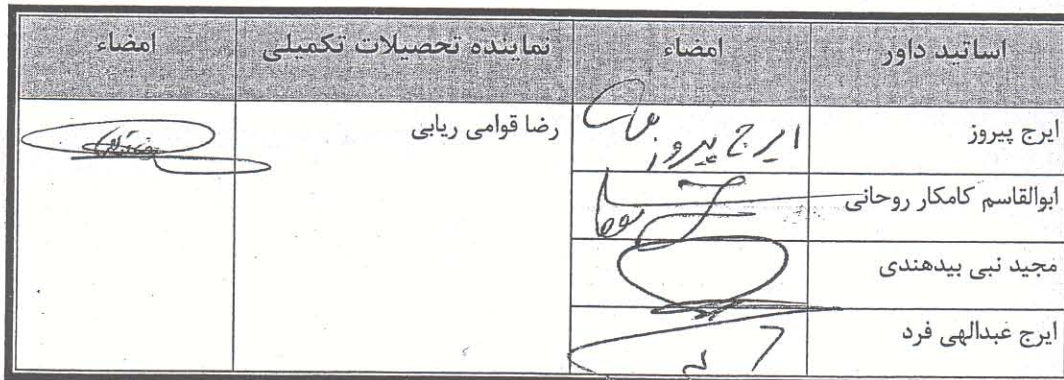 اساتید داور امضاء نماینده تحصیلات تکمیلی امضاء
ایرج پیروز ایرج پیروز رضا قوامی ریابی
ابوالقاسم کامکار روحانی
مجید نبی بیدهندی
ایرج عبدالهی فرد